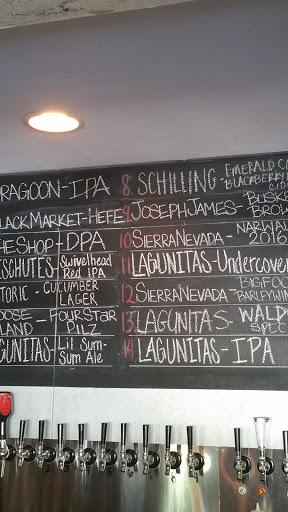 RAGOON-IPA
LACKMARKET-HEFE
HESHOP-DPA
ESCHUTES-Swivelhead
Red IPA
TORIC-CUCUMBER
LAGER
OOSE-FOURSTAR
LAND-PILZ
GUNITAS-LIL SUM-
SUM ALE
8. SCHILLING-EMERALD C
BLACKBERRY
CID
9 JOSEPHJAMES-BUSK
BROW
10 SIERRANEVADA-NARWAL
2016
11 LAGUNITAS-Undercover
12 SIERRANEVADA-BIGFOO
BARLEYWIN
13 LAGUNITAS-WALD
SPEC
14 LAGUNITAS-IPA